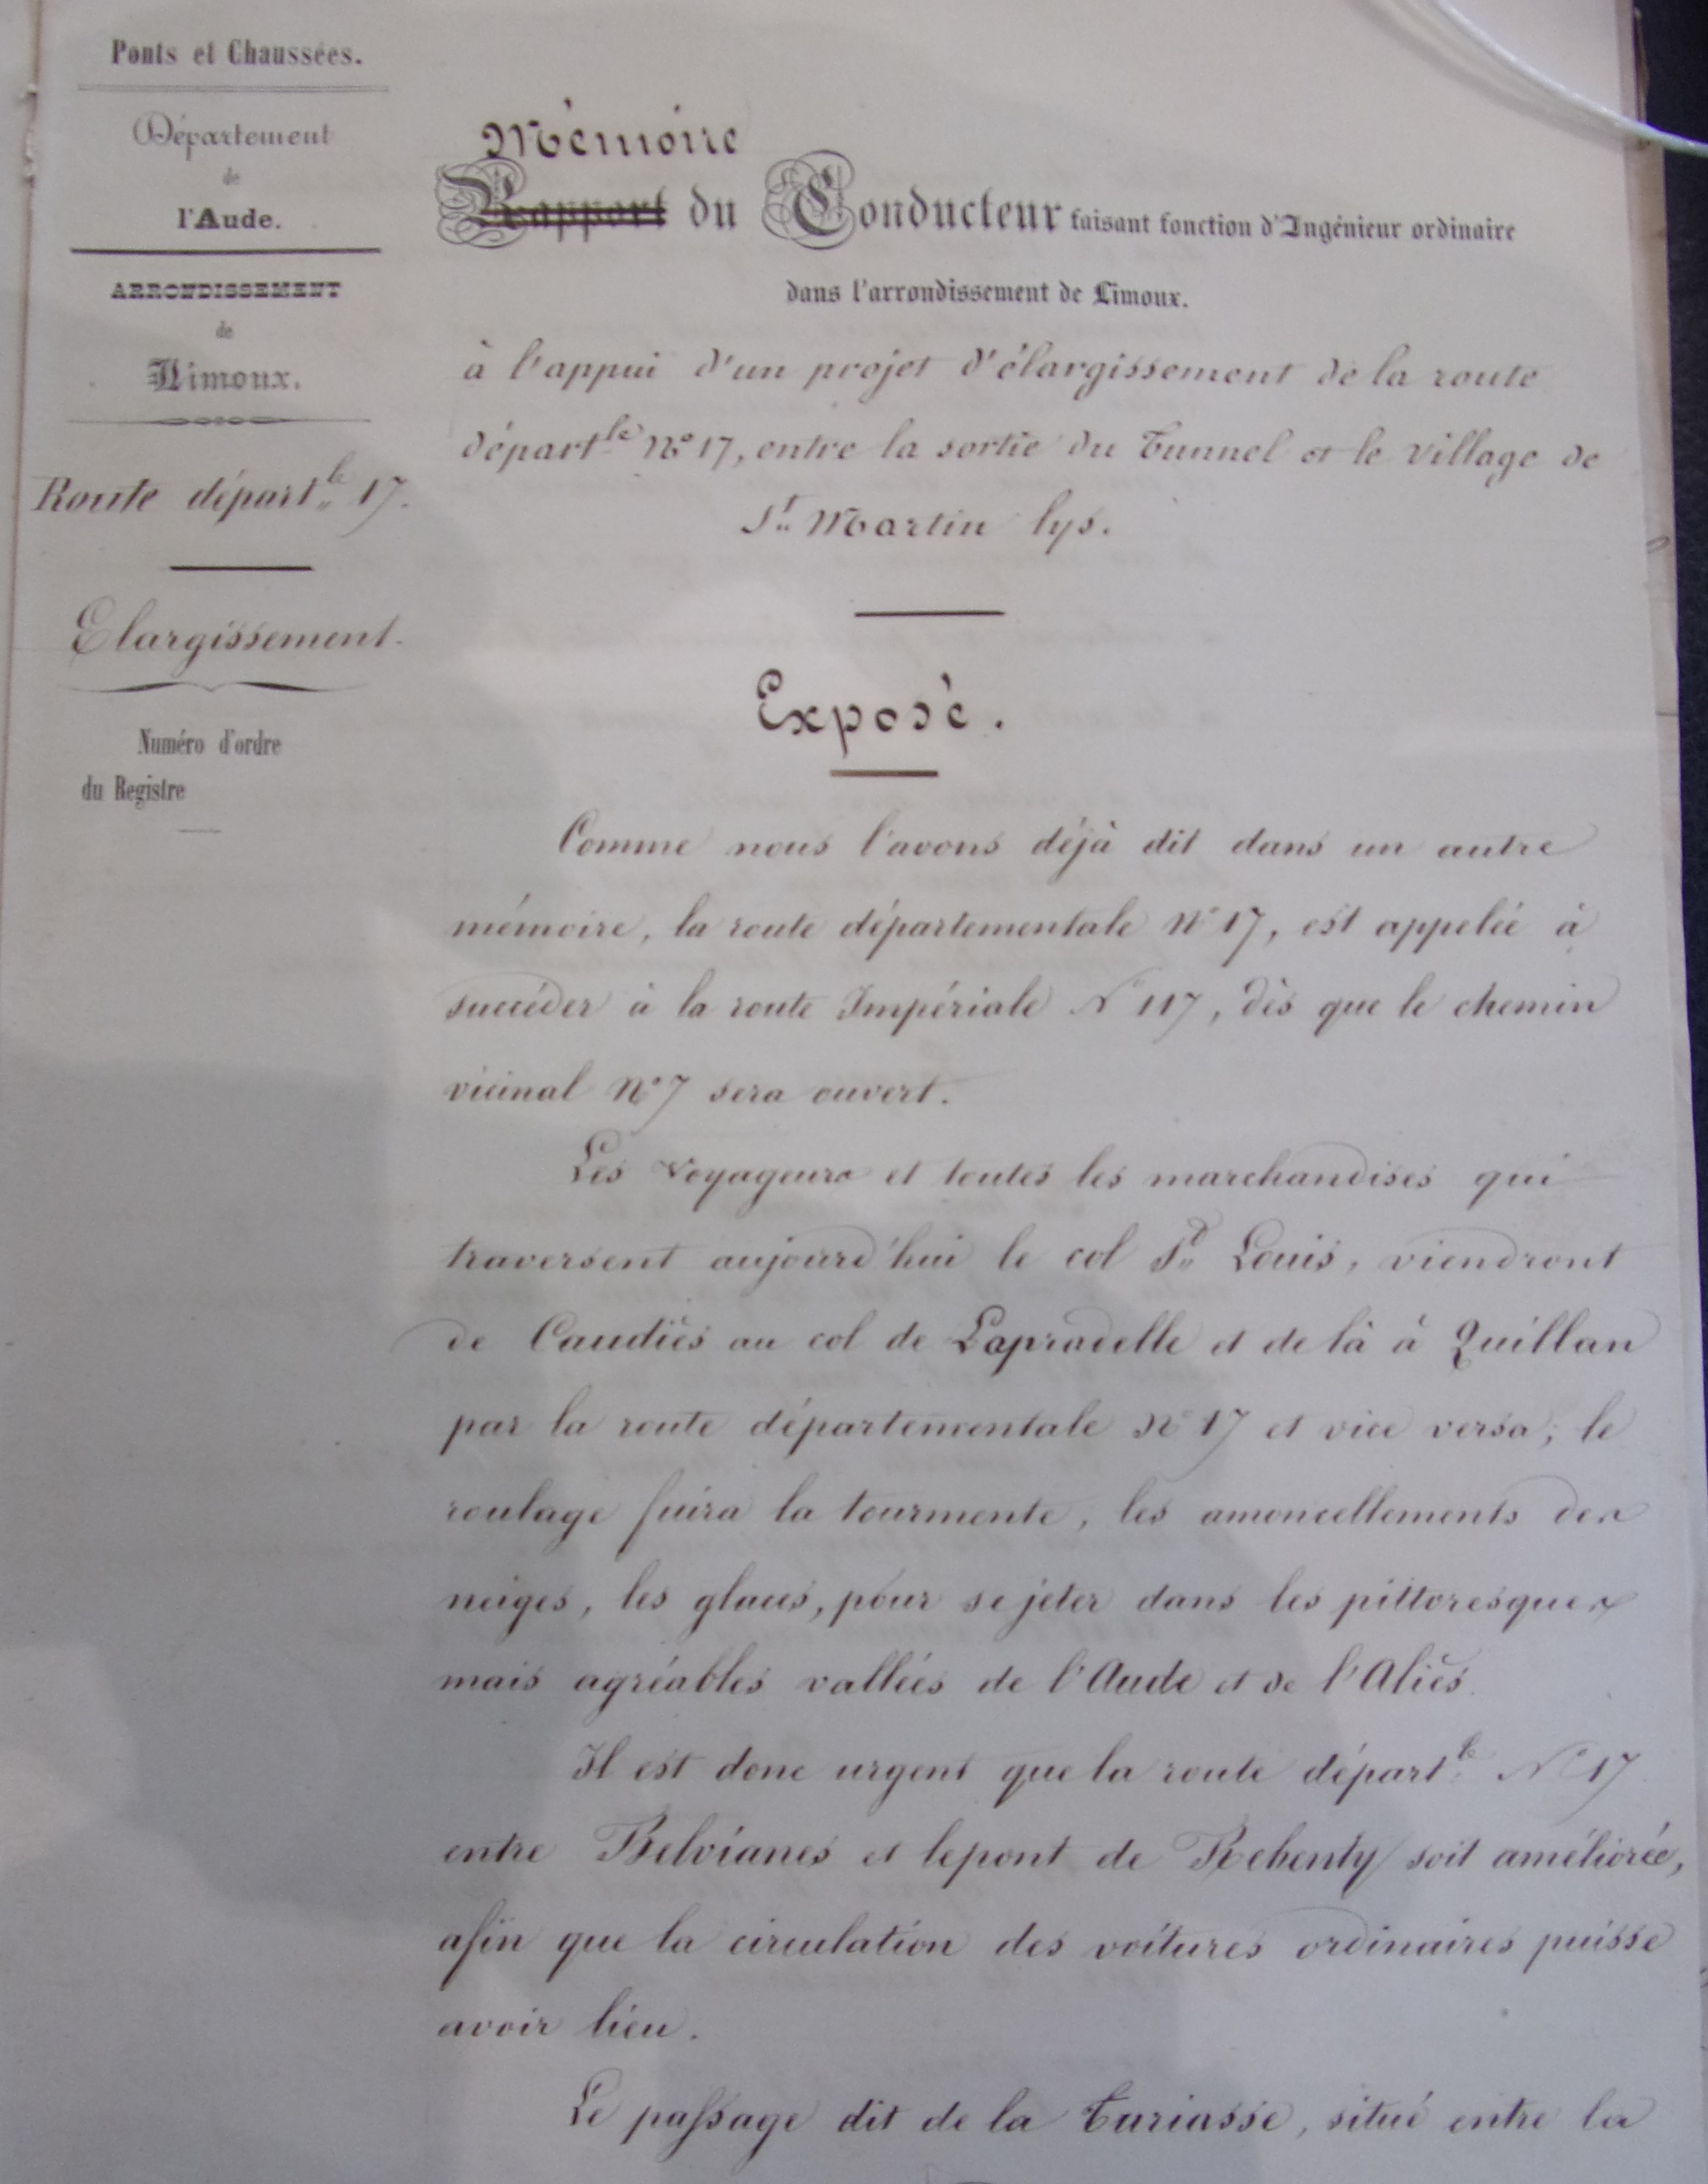 Ponts et Chaussées.
Département
de
l'Aude.
ARRONDISSEMENT
de
Limoux.
Route départ.le 17.
Elargissement.
Numéro d'ordre
du Registre
Mémoire
Rapport du Conducteur faisant fonction d'Ingénieur ordinaire
dans l'arrondissement de Limoux.
à l'appui d'un projet d'élargissement de la route
départ.le N° 17, entre la sortie du Tunnel et le village de
St. Martin lys.
Exposé.
Comme nous l'avons déjà dit dans un autre
mémoire, la route départementale N° 17, est appelée à
succéder à la route Impériale N° 117, dès que le chemin
vicinal N° 7 sera ouvert.
Les Voyageurs et toutes les marchandises qui
traversent aujourd'hui le col St. Louis, viendront
de Caudiès au col de Lapradelle et de là à Quillan
par la route départementale N° 17 et vice versa; le
roulage fuira la tourmente, les amoncellements des
neiges, les glaces, pour se jeter dans les pittoresques
mais agréables vallées de l'Aude et de l'Aliès.
Il est donc urgent que la route départ.le N° 17
entre Belvianes et le pont de Rebenty soit améliorée,
afin que la circulation des voitures ordinaires puisse
avoir lieu.
Le passage dit de la Turiasse, situé entre la